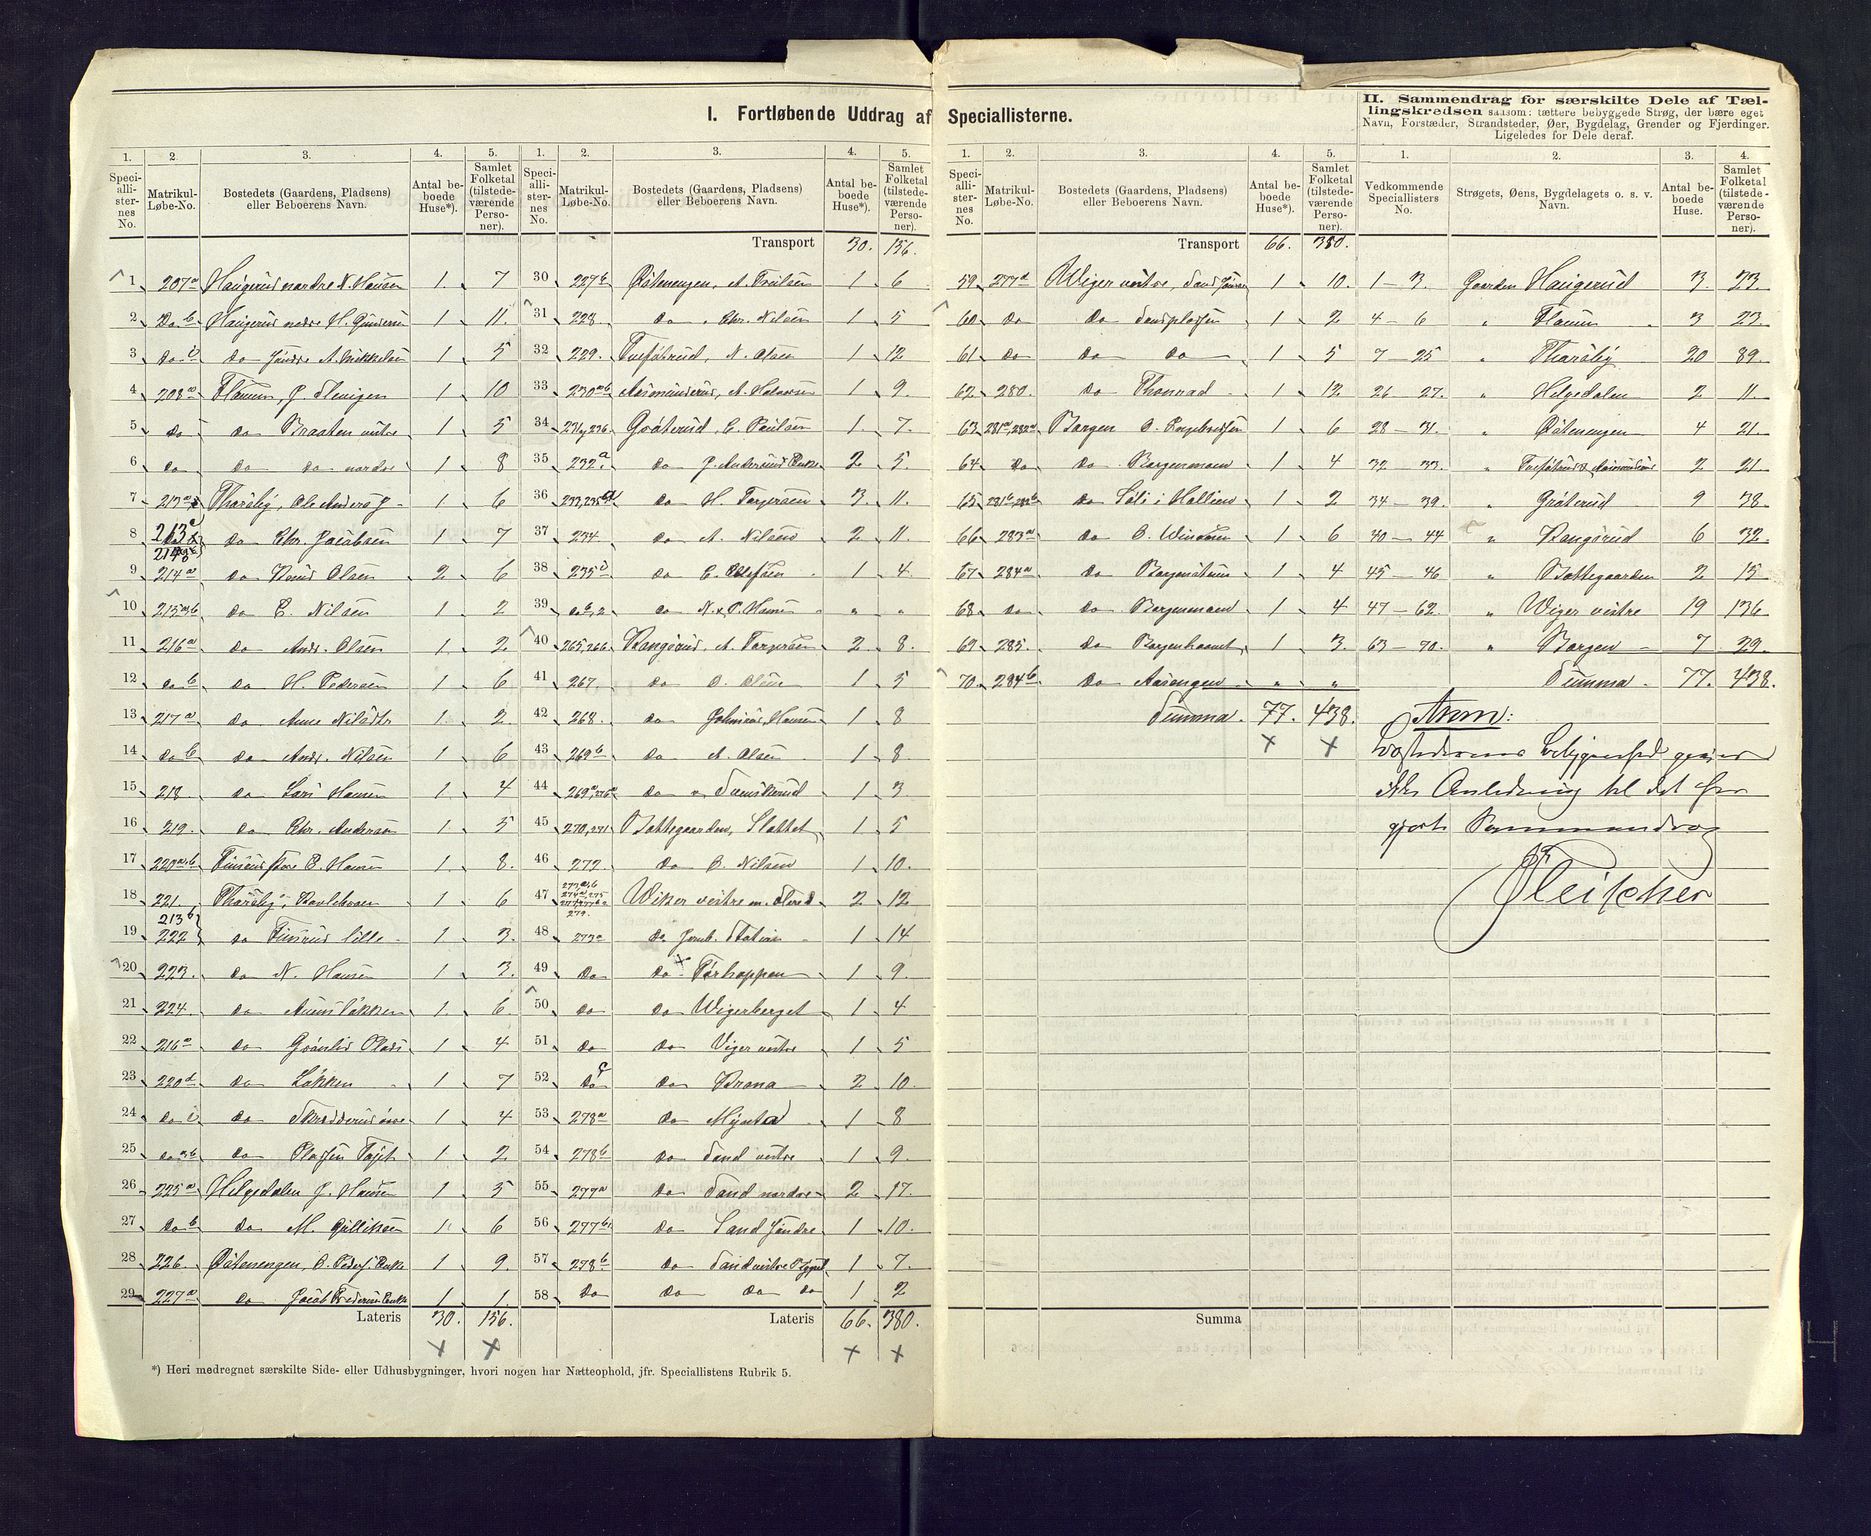 I. Fortløbende Uddrag af Speciallisterne.
II. Sammendrag for særskilte Dele af Tællingskredsen saasom: tættere bebyggede Strøg, der bære eget
Navn, Forstæder, Strandsteder, Øer, Bygdelag, Grender og Fjerdinger.
Ligeledes for Dele deraf.
1. 2. 3. 4. 5. 1. 2. 3. 4. 5. 1. 2. 3. 4. 5. 1. 2. 3. 4.
Speciallisternes No. Matrikul-Løbe-No. Bostedets (Gaardens, Pladsens) eller Beboerens Navn. Antal beboede Huse*). Samlet Folketal (tilstedeværende Personer).
Speciallisternes No. Matrikul-Løbe-No. Bostedets (Gaardens, Pladsens) eller Beboerens Navn. Antal beboede Huse*). Samlet Folketal (tilstedeværende Personer).
Speciallisternes No. Matrikul-Løbe-No. Bostedets (Gaardens, Pladsens) eller Beboerens Navn. Antal beboede Huse*). Samlet Folketal (tilstedeværende Personer).
Vedkommende Speciallisters No. Strøgets, Øens, Bygdelagets o. s. v. Navn. Antal beboede Huse. Samlet Folketal (tilstedeværende Personer).
1 207a Haugerud nordre N. Hansen 1 7
2 Do b Haugerud nedre H. Gundersen 1 11.
3 Do c Do Søndre A. Mikkelsen 1 5
4 208a Flauen, J. 1 10
5 Do Do Braaten vestre 1 5
6 Do Do Do nordre 1 8
7 213a Tharsby, Ole Anders J 1 6
8 213a 214 Do Chr. Jacobsen 1 7
9 214a Do Knud Olsen 2 6
10 215ab Do E. Nilsen 1 2
11 216a Do Ands. Olsen 1 2
12 Do b Do H. Pedersen 1 6
13 217a Do Anne Nilsdtr 1 2
14 Do b Do Ands. Nilsen 1 6
15 218 Do Lars Hansen 1 4
16 219. Do Chr. Andersen 1 5
17 220ab Finsrud store E. Hansen 1 8.
18 221. Tharsby, 1 6
19 213b 222 Do Finsrud lille 1 3.
20 223. Do N. Hansen 1 3.
21 224. Do Auensløkken 1 6
22 216a Do Grønlid Olads 1 4
23 220d Do Løkken 1 7
24 Do Do Skrædderud 1 4
25 Do Do Pladsen 1 2
26 225a Helgedalen J. Hansen 1 5
27 Do b Do M. Gulliksen 1 6
28 226. Østenengen, O. Peders. Enke 1 9.
29 227a Do Jacob Pedersens Enke 1 1.
Lateris 30. 156.
Transport 30. 156.
30 227b Østenengen, A. Truelsen 1 6
31 228 Do Chr. Nilsen 1 5
32 229. Trefatrud, N. Olsen 1 12
33 230ab Aasmunderud, A. Halvorsen 1 9.
34 231, 236 Grøterud, C. Paulsen 1 7.
35 232a Do J. Andersens Enke 2 5.
36 233, 235 Do H. Torgersen 3. 11.
37 234 Do A. Nilsen 2 11.
38 235c Do C. Olefsen 1 4.
39 Do Do N. & P. Hansen " "
40 265,266 Rangsrud, A. Torgersen 2 8.
41 267. Do O. Olsen 1 5
42 268. Do Johannes Hansen 1 8
43 269b Do A. Olsen 1 8
44 269a, 276a Do v. Svenskerud 1 3
45 270,271 Bottegaarden, Slottet 1 5
46 272. Do O. Nilsen 1 10.
47 273ab 274a, 275 279. Wiker vestre m. 2 12
48 273a Do Jernb. Station 1 14
49 Do Do Torhoppen 1 9
50 Do Do Wigerberget 1 4
51 Do Do Viger vestre 1 5
52 Do Do Brona 2 10.
53 278a Do Mynta 1 8
54 278b Do Sand vestre 1 9.
55 277a Do Sand nordre 2 17.
56 277b Do Sand Søndre 1 10.
57 278b Do Sand vestre 1 7.
58 Do Do Do Do 1 2
Lateris 66. 380.
Transport 66. 380.
59 277d Wiger vestre, Sand Søndre 1 10.
60 Do Do Sandpladsen 1 2
61 Do Do Do 1 5
62 280. Do Thonrud 1 12
63 281a, 282a Borgen O. Engebretsen 1 6
64 Do Do Borgenmoen 1 4
65 281b, 282b Do Sole i Hallien 1 2
66 283a Do C. Windorn 1 6
67 284a Do Borgenstuen 1 4
68 Do Do Borgenmoen 1 4
69 285. Do Borgenhaavet 1 3.
70. 294b Do Aasengen " "
Summa 77. 438.
1 - 3. Gaarden Haugerud 3. 23.
4 - 6 " Flauen 3 23.
7 - 25 " Tharsby 20 89.
26 - 27. " Helgedalen 2 11.
28 - 31. " Østenengen 4 21.
32 - 33. " Trefatrud & Aasmunderud 2 21
34 - 39. " Grøterud 9 38.
40 - 44 " Rangsrud 6 32.
45 - 46 " Bottegaarden 2 15
47 - 62. " Wiger vestre 19 136
63 - 70. " Borgen 7 29.
Summa 77. 438.
Anm:
Bostedernes Beliggenhed giver
ikke Anledning til det for
gjorte Sammendrag
Fleischer
Summa
*) Heri medregnet særskilte Side- eller Udhusbygninger, hvori nogen har Natteophold, jfr. Speciallistens Rubrik 5.